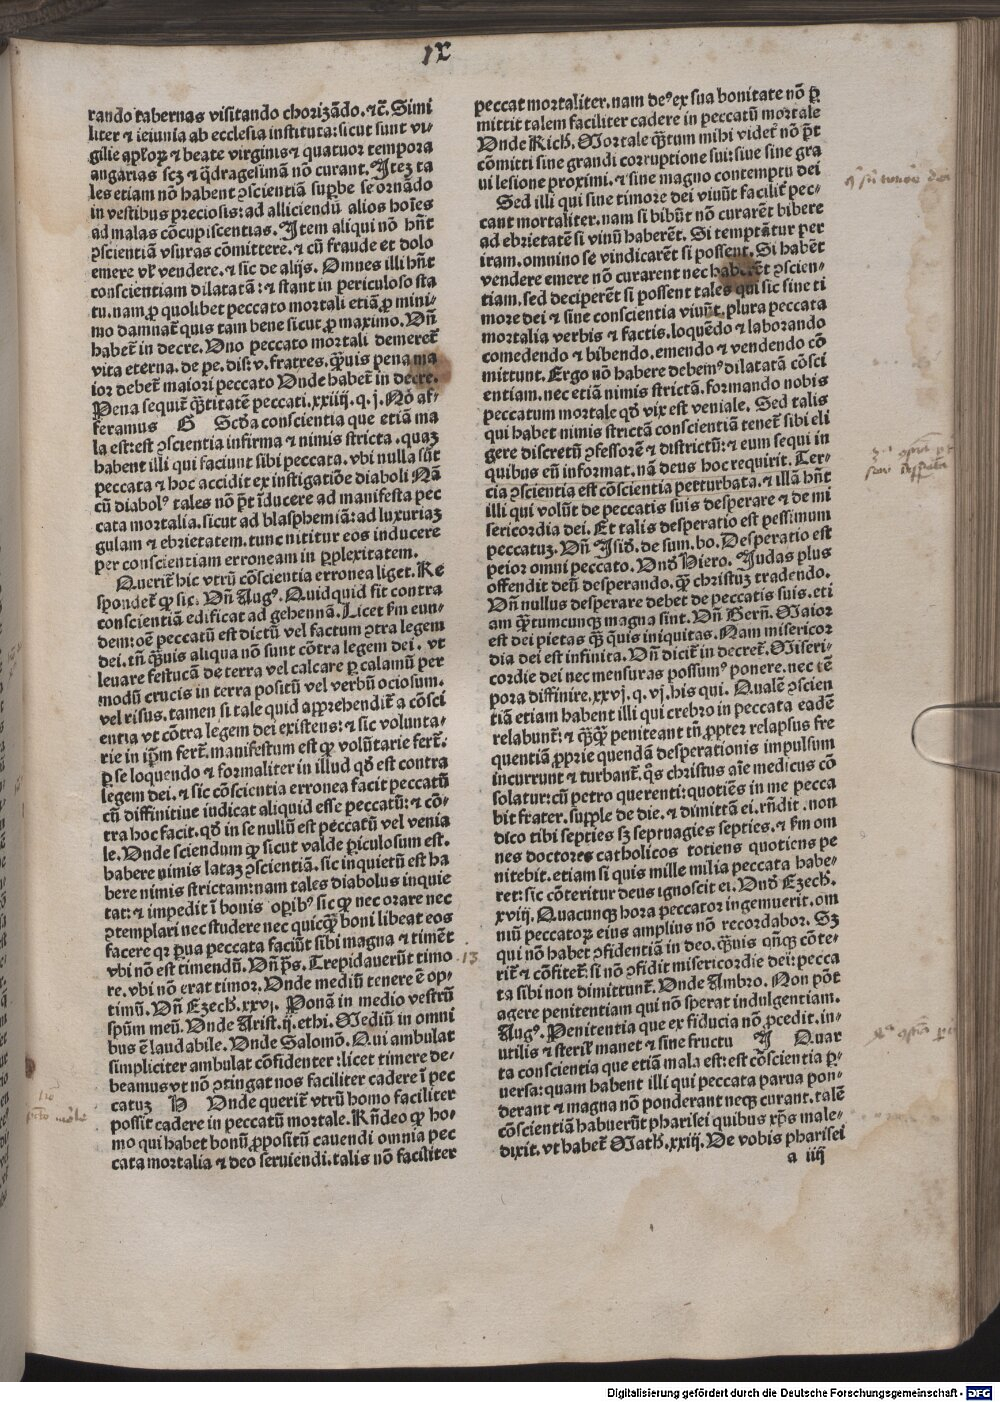 IX
rando tabernas visitando chorizãdo. ⁊c̃. Simi
liter ⁊ ieiunia ab ecclesia instituta: sicut sunt vi-
gilie apłoꝝ ⁊ beate virginis ⁊ quatuor tempora
angarias scꝫ ⁊ q̃dragesimã nõ curant. Iteꝫ ta
les etiam nõ habent ꝯscientiã suꝑbe se ornãdo
in vestibus preciosis: ad alliciendũ alios hoĩes
ad malas cõcupiscentias. Item aliqui nõ hñt
ꝯscientiã vsuras cõmittere. ⁊ cũ fraude et dolo
emere vel vendere. ⁊ sic de alijs. Omnes illi hñt
conscientiam dilatatã: ⁊ stant in periculoso sta
tu. nam ꝓ quolibet peccato mortali etiã ꝓ mini-
mo damnat̃ quis tam bene sicut ꝓ maximo. Vñ
habet̃ in decre. Vno peccato mortali demeret̃
vita eterna. de pe. dis. v. fratres. q̃uis pena ma
ior debet̃ maiori peccato Vnde habet̃ in decre.
Pena sequit̃ q̃titatẽ peccati. xxiiij. q. j. Nõ af-
feramus G Scđa conscientia que etiã ma
la est: est ꝯscientia infirma ⁊ nimis stricta. quaꝫ
habent illi qui faciunt sibi peccata. vbi nulla sũt
peccata ⁊ hoc accidit ex instigatiõe diaboli Nã
cũ diabolꝰ tales nõ põt ĩducere ad manifesta pec
cata mortalia. sicut ad blasphemiã: ad luxuriaꝫ
gulam ⁊ ebrietatem. tunc nititur eos inducere
per conscientiam erroneam in ꝑplexitatem.
Querit̃ hic vtrũ cõscientia erronea liget. Re
spondet̃ ꝙ sic. Vñ Augꝰ. Quidquid fit contra
conscientiã edificat ad gehennã. Licet fm eun-
dem: oẽ peccatũ est dictũ vel factum ꝯtra legem
dei. tñ q̃uis aliqua nõ sunt cõtra legem dei. vt
leuare festucã de terra vel calcare ꝑ calamũ per
modũ crucis in terra positũ vel verbũ ociosum.
vel risus. tamen si tale quid apprehendit̃ a cõsci
entia vt cõtra legem dei existens: ⁊ sic volunta-
rie in ip̃m fert̃. manifestum est ꝙ volũtarie fert̃.
ꝑ se loquendo ⁊ formaliter in illud qđ est contra
legem dei. ⁊ sic cõscientia erronea facit peccatũ
cũ diffinitiue iudicat aliquid esse peccatũ: ⁊ cõ-
tra hoc facit. qđ in se nullũ est peccatũ vel venia
le. Vnde sciendum ꝙ sicut valde ꝑiculosum est.
habere nimis lataꝫ ꝯscientiã. sic inquietũ est ha
bere nimis strictam: nam tales diabolus inquie
tat: ⁊ impedit ĩ bonis oꝑibꝰ sic ꝙ nec orare nec
ꝯtemplari nec studere nec quicq̃ boni libeat eos
facere qꝛ ꝑua peccata faciũt sibi magna ⁊ timẽt
vbi nõ est timendũ. Vñ p̃s. Trepidauerũt timo
re. vbi nõ erat timor. Vnde mediũ tenere ẽ op-
timũ. Vñ Ezech. xxvj. Ponã in medio vestrũ
spũm meũ. Vnde Arist. ij. ethi. Mediũ in omni
bus ẽ laudabile. Vnde Salomõ. Qui ambulat
simpliciter ambulat cõfidenter: licet timere de-
beamus vt nõ ꝯtingat nos faciliter cadere ĩ pec
catuꝫ H Vnde querit̃ vtrũ homo faciliter
possit cadere in peccatũ mortale. Rñdeo ꝙ ho-
mo qui habet bonũ ꝓpositũ cauendi omnia pec
cata mortalia ⁊ deo seruiendi. talis nõ faciliter
peccat mortaliter. nam deꝰ ex sua bonitate nõ ꝑ
mittit talem faciliter cadere in peccatũ mortale
Vnde Rich. Mortale q̃tum mihi videt̃ nõ põt
cõmitti sine grandi corruptione sui: siue sine gra
ui lesione proximi. ⁊ sine magno contemptu dei
Sed illi qui sine timore dei viuũt facilit̃ pec-
cant mortaliter. nam si bibũt nõ curarẽt bibere
ad ebrietatẽ si vinũ haberẽt. Si temptãtur per
iram. omnino se vindicarẽt si possent. Si habẽt
vendere emere nõ curarent nec haberẽt ꝯscien-
tiam. sed deciperẽt si possent tales qui sic sine ti
more dei ⁊ sine conscientia viuũt. plura peccata
mortalia verbis ⁊ factis. loquẽdo ⁊ laborando
comedendo ⁊ bibendo. emendo ⁊ vendendo cõ
mittunt. Ergo nõ habere debemꝰ dilatatã cõsci
entiam. nec etiã nimis strictã. formando nobis
peccatum mortale qđ vix est veniale. Sed talis
qui habet nimis strictã conscientiã tenet̃ sibi eli
gere discretũ ꝯfessorẽ ⁊ districtũ: ⁊ eum sequi in
quibus eũ informat. nã deus hoc requirit. Ter-
cia ꝯscientia est cõscientia perturbata. ⁊ illã hñt
illi qui volũt de peccatis suis desperare ⁊ de mi
sericordia dei. Et talis desperatio est pessimum
peccatuꝫ. Vñ Isid. de sum. bo. Desperatio est
peior omni peccato. Vnđ Hiero. Iudas plus
offendit deũ desperando. q̃ christuꝫ tradendo.
Vñ nullus desperare debet de peccatis suis. eti
am q̃tumcunqꝫ magna sint. Vñ Berñ. Maior
est dei pietas q̃ quis iniquitas. Nam misericor
dia dei est infinita. Vñ dicit̃ in decret̃. Miseri-
cordie dei nec mensuras possumꝰ ponere. nec tẽ
pora diffinire. xxvj. q. vj. his qui. Qualẽ ꝯscien
tiã etiam habent illi qui crebro in peccata eadẽ
relabunt̃: ⁊ q̃q̃ peniteant tñ ꝓpter relapsus fre
quentiã ꝓprie quendã desperationis impulsum
incurrunt ⁊ turbant̃. q̃s christus aĩe medicus cõ
solatur: cũ petro querenti: quotiẽs in me pecca
bit frater. supple de die. ⁊ dimittã ei. rñdit. non
dico tibi septies sꝫ septuagies septies. ⁊ fm om
nes doctores catholicos totiens quotiens pe
nitebit. etiam si quis mille milia peccata habe-
ret: sic cõteritur deus ignoscit ei. Vnđ Ezech.
xviij. Quacunqꝫ hora peccator ingemuerit. om
niũ peccatoꝝ eius amplius nõ recordabor. Sꝫ
qui nõ habet ꝯfidentiã in deo. q̃uis qñqꝫ cõte-
rit̃ ⁊ cõfitet̃: si nõ ꝯfidit misericordie dei: pecca
ta sibi non dimittunt̃. Vnde Ambro. Non põt
agere penitentiam qui nõ sperat indulgentiam.
Augꝰ. Penitentia que ex fiducia nõ ꝓcedit. in-
utilis ⁊ steril̃ manet ⁊ sine fructu I Quar
ta conscientia que etiã mala est: est cõscientia ꝑ-
uersa: quam habent illi qui peccata parua pon-
derant ⁊ magna nõ ponderant necqꝫ curant. talẽ
cõscientiã habuerũt pharisei quibus xp̃s male-
dixit. vt habet̃ Math. xxiij. Ve vobis pharisei
a iiij
13
Digitalisierung gefördert durch die Deutsche Forschungsgemeinschaft - DFG